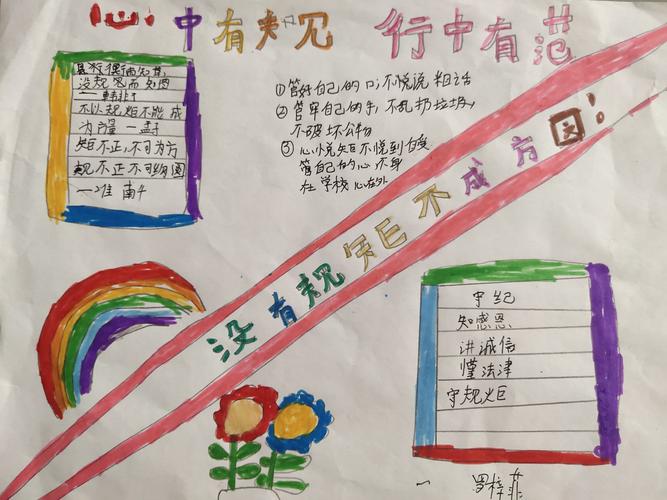 心中有规 行中有范
没规矩而知圆
— 韩非子
不以规矩不能成
方圆 — 孟子
矩不正,不可为方
规不正不可为圆
—淮南子
①管好自己的口,不说粗话
②管牢自己的手,不乱扔垃圾,
不破坏公物
管自己的心,不身
在学校心在外
没有规矩不成方圆!
守纪
知感恩
讲诚信
懂法津
守规矩
罗梓菲